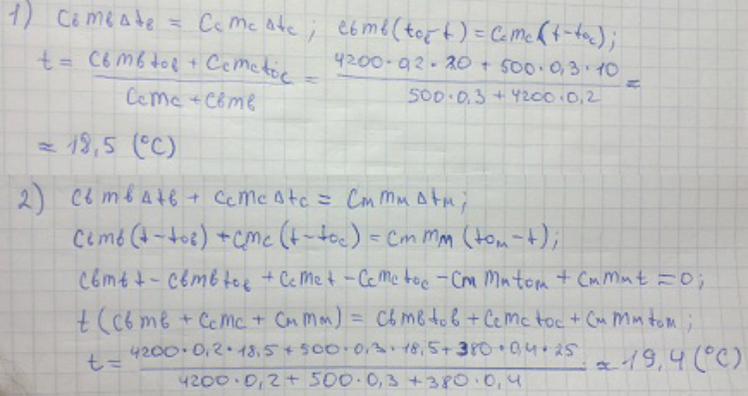 1) CвmвΔtв = CcmcΔtc ; Cвmв(t₀в-t) = Ccmc(t-t₀c);
t = (Cвmвt₀в + Ccmct₀c)/(Ccmc + Cвmв) = (4200·0,2·20 + 500·0,3·10)/(500·0,3 + 4200·0,2) =
≈ 18,5 (°C)
2) CвmвΔtв + CcmcΔtc = CмmмΔtм;
Cвmв(t-t₀в) + Ccmc(t-t₀c) = Cмmм(t₀м-t);
Cвmвt - Cвmвt₀в + Ccmct - Ccmct₀c - Cмmмt₀м + Cмmмt = 0;
t(Cвmв + Ccmc + Cмmм) = Cвmвt₀в + Ccmct₀c + Cмmмt₀м;
t = (4200·0,2·18,5 + 500·0,3·18,5 + 380·0,4·25)/(4200·0,2 + 500·0,3 + 380·0,4) ≈ 19,4 (°C)